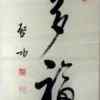 多福
启功